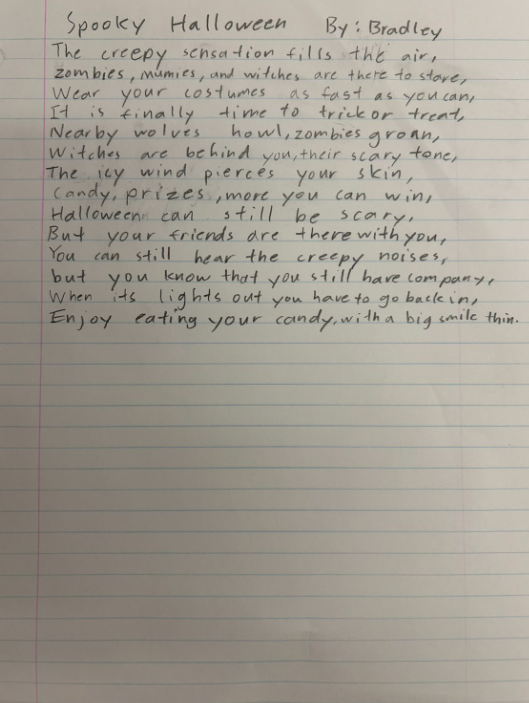 Spooky Halloween By: Bradley
The creepy sensation fills the air,
zombies, mumies, and witches are there to stare,
Wear your costumes as fast as you can,
It is finally time to trick or treat,
Nearby wolves howl, zombies groan,
Witches are behind you, their scary tone,
The icy wind pierces your skin,
Candy, prizes, more you can win,
Halloween can still be scary,
But your friends are there with you,
You can still hear the creepy noises,
but you know that you still have company,
When its lights out you have to go back in,
Enjoy eating your candy, with a big smile thin.